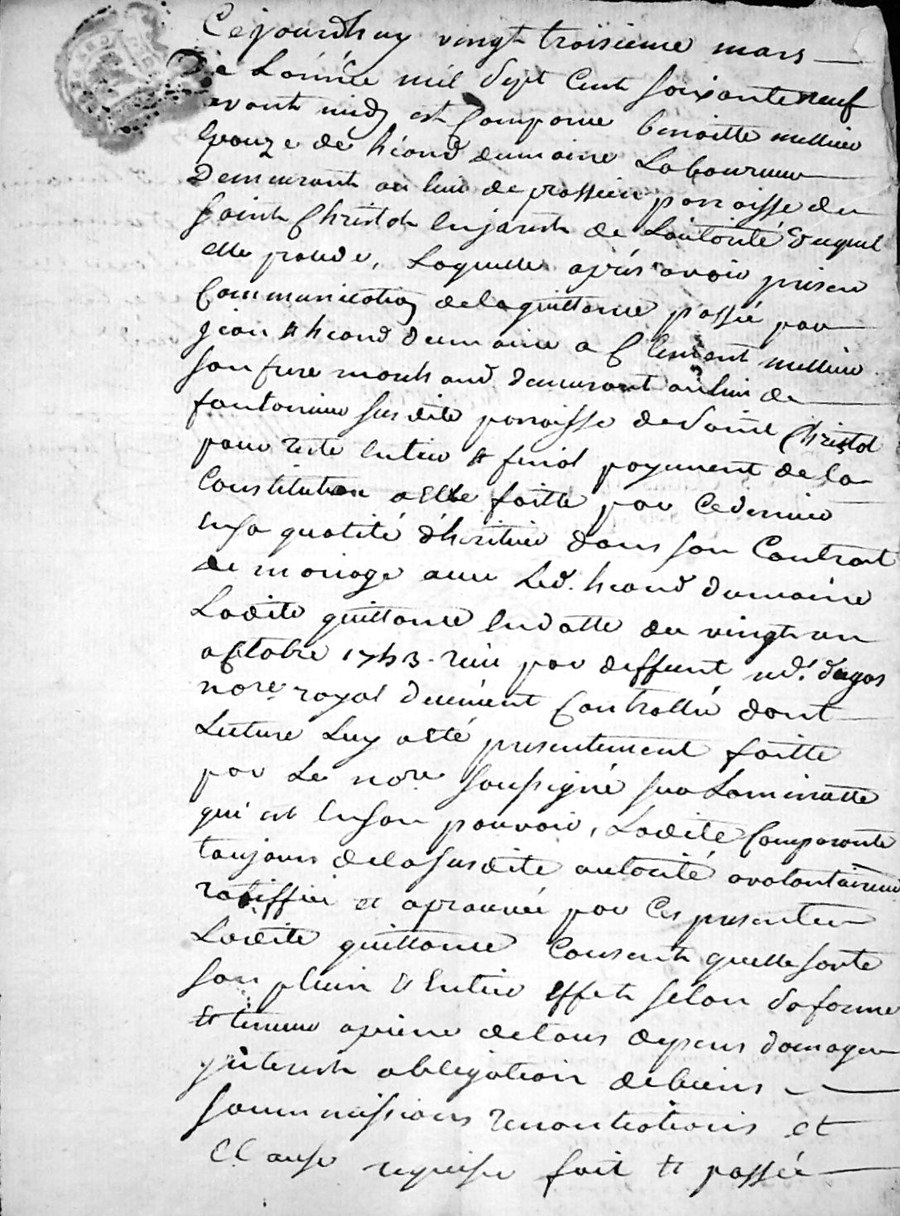 Cejourdhuy vingt troisieme mars
de Lannée mil Sept Cent soixante neuf
avant midy est Comparue benoitte mellier
Epouze de heand dumaine Laboureur
Demeurant au lieu de parroisse de
saint Christol en jarest de Lautorité duquel
elle procede, Laquelle aprés avoir prise
Communication de la quittance passée par
jean & heand dumaine a Clement mellier
son frere marchand demeurant au lieu de
fontanieu susdite parroisse de Saint Christol
pour reste entier & final payement de la
Constitution a elle faitte par Cedernier
en sa qualité d'heritier dans son Contrat
de mariage avec Led. heand dumaine
Ladite quittance en datte du vingt un
octobre 1743. recue par deffunt md. dugas
nore. royal duement Controllée dont
Lecture Luy a eté presentement faitte
par Le nore. soussigné sur La minutte
qui est en son pouvoir, Ladite Comparante
toujours de la susdite autorité a volontairement
ratiffiée et aprouvée par Ces presentes
Ladite quittance Consent quelle sorte
son plein & Entier effet selon sa forme
& teneur a peine de tous depens domages
interest obligation de biens
soummissions renontiations et
Clause requise fait & passée